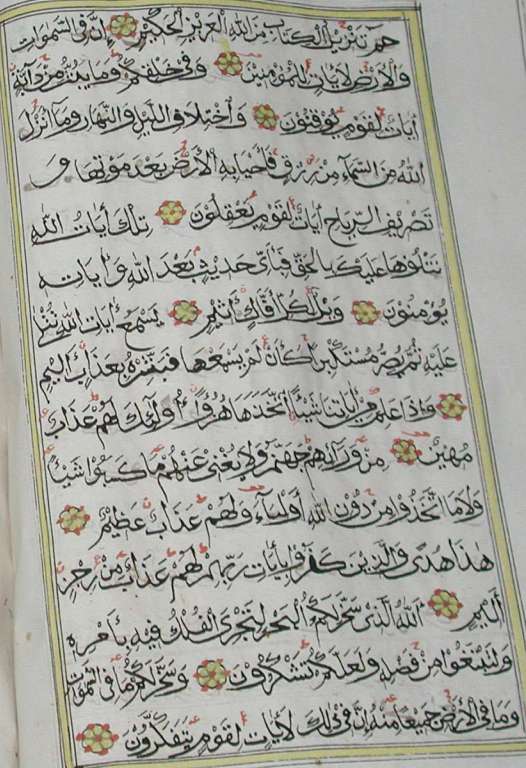 حم تنزيل الكتاب من الله العزيز الحكيم ۝ إن في السموات
والأرض لآيات للمؤمنين ۝ وفي خلقكم وما يبث من دآبة
آيات لقوم يوقنون ۝ واختلاف الليل والنهار وما أنزل
الله من السمآء من رزق فأحيا به الأرض بعد موتها و
تصريف الرياح آيات لقوم يعقلون ۝ تلك آيات الله
نتلوها عليك بالحق فبأي حديث بعد الله وآياته
يؤمنون ۝ ويل لكل أفاك أثيم ۝ يسمع آيات الله تتلى
عليه ثم يصر مستكبرا كأن لم يسمعها فبشره بعذاب أليم
۝ وإذا علم من آياتنا شيئا اتخذها هزوا أولئك لهم عذاب
مهين ۝ من ورآئهم جهنم ولا يغني عنهم ما كسبوا شيئا
ولا ما اتخذوا من دون الله أوليآء ولهم عذاب عظيم ۝
هذا هدى والذين كفروا بآيات ربهم لهم عذاب من رجز
أليم ۝ الله الذي سخر لكم البحر لتجري الفلك فيه بأمره
ولتبتغوا من فضله ولعلكم تشكرون ۝ وسخر لكم ما في السموات
وما في الأرض جميعا منه إن في ذلك لآيات لقوم يتفكرون ۝